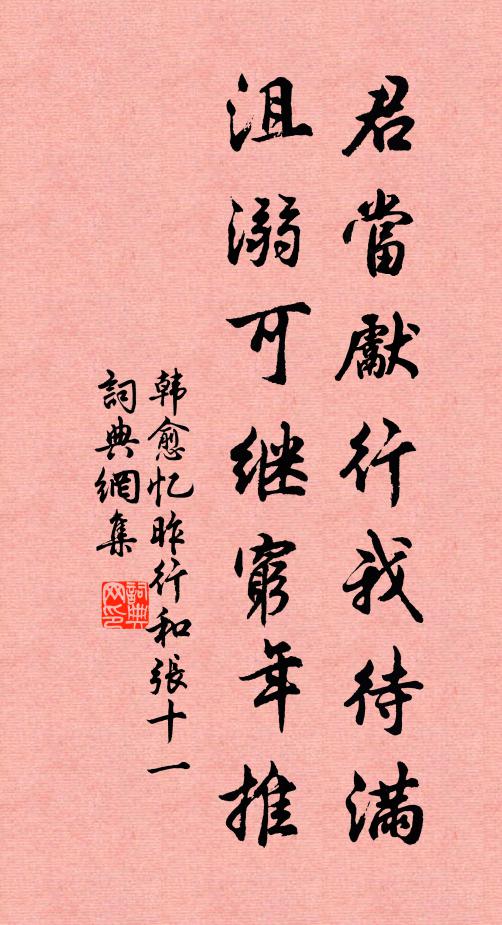 君當獻行我待满
沮溺可继窮年推
韩愈忆昨行和張十一
詞典網集
詞典网印